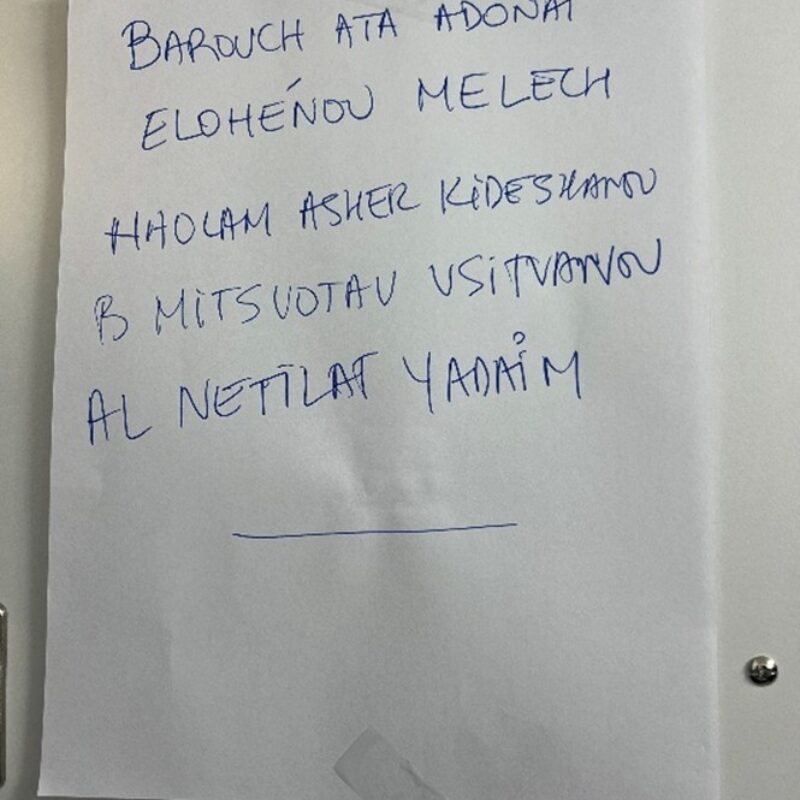 BAROUCH ATA ADONAI
ELOHÉNOU MELECH
HHOLAM ASHER KIDESHANOU
B MITSVOTAV VSITVANOU
AL NETILAT YADAIM